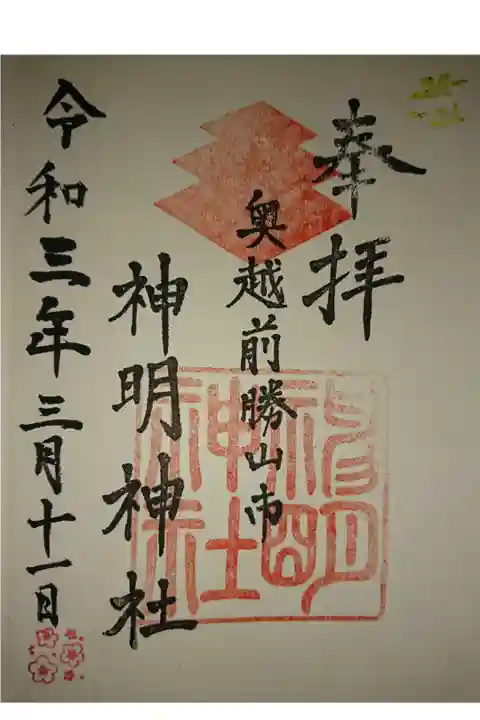 奉拝
奥越前勝山市
神明神社
令和三年三月十一日
神明神社